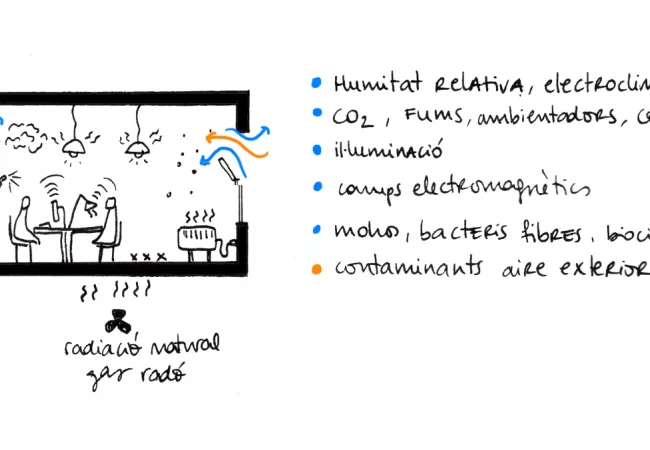 Humitat RELATIVA, electroclim
CO2, FUMS, ambientadors, co
il·luminació
camps electromagnètics
mohos, bacteris fibres, bioci
contaminants aire exterior
radiació natural
gas radó